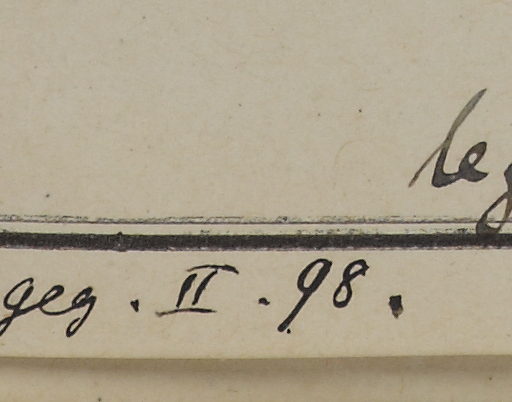 leg
geg. II. 98.